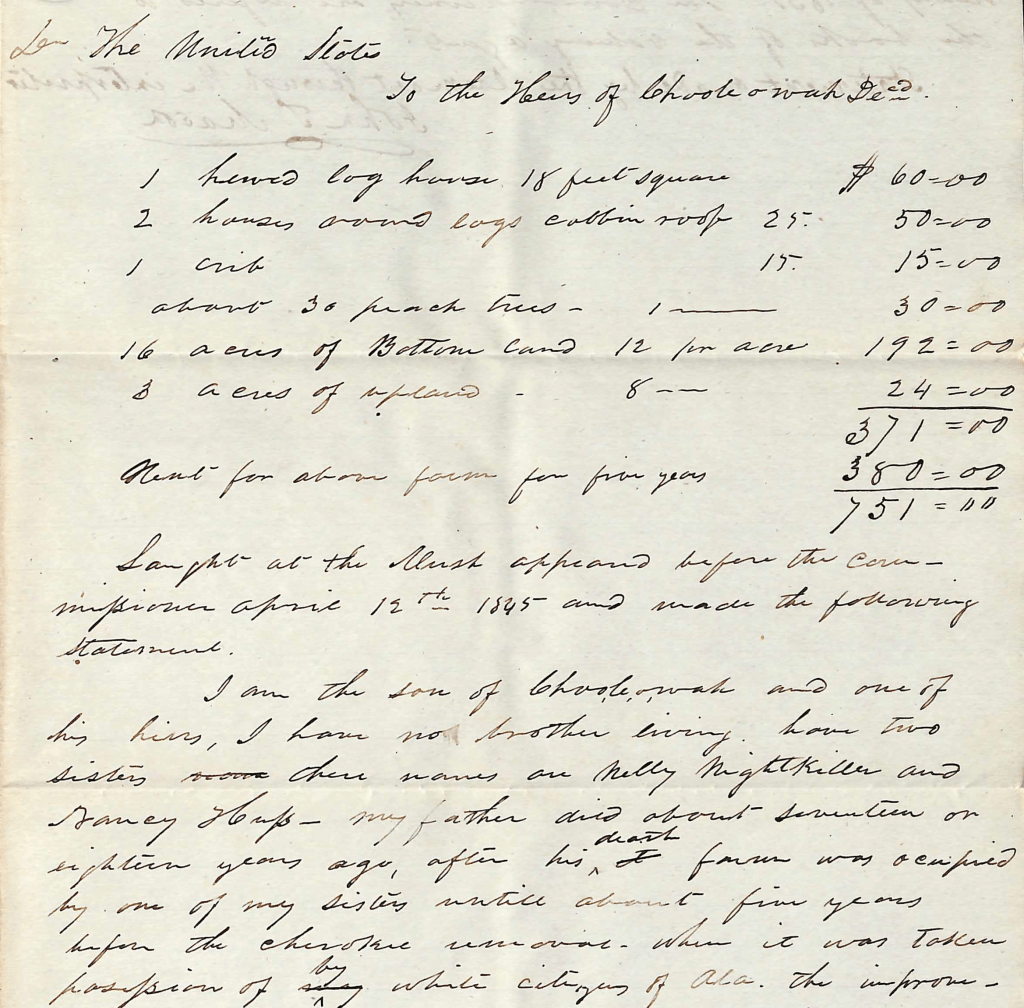 The United States
To the Heirs of Choole-o-wah Decd.
1 hewed log house 18 feet square $ 60=00
2 houses round logs cabbin roof 25. 50=00
1 crib 15. 15=00
about 30 peach trees - 1 —— 30=00
16 acres of Bottom land 12 per acre 192=00
3 acres of upland - 8 -- 24=00
371=00
Rent for above farm for five years 380=00
751="
Caught at the Mush appeared before the com-
missioner April 12th 1845 and made the following
statement.
I am the son of Choole-o-wah and one of
his heirs, I have no brother living. have two
sisters there names are Nelly Nightkiller and
Nancy Huss - my father died about seventeen or
eighteen years ago, after his death farm was ocupied
by one of my sisters untill about five years
before the cherokee removal - when it was taken
possession of by white citizens of Ala. the improve-